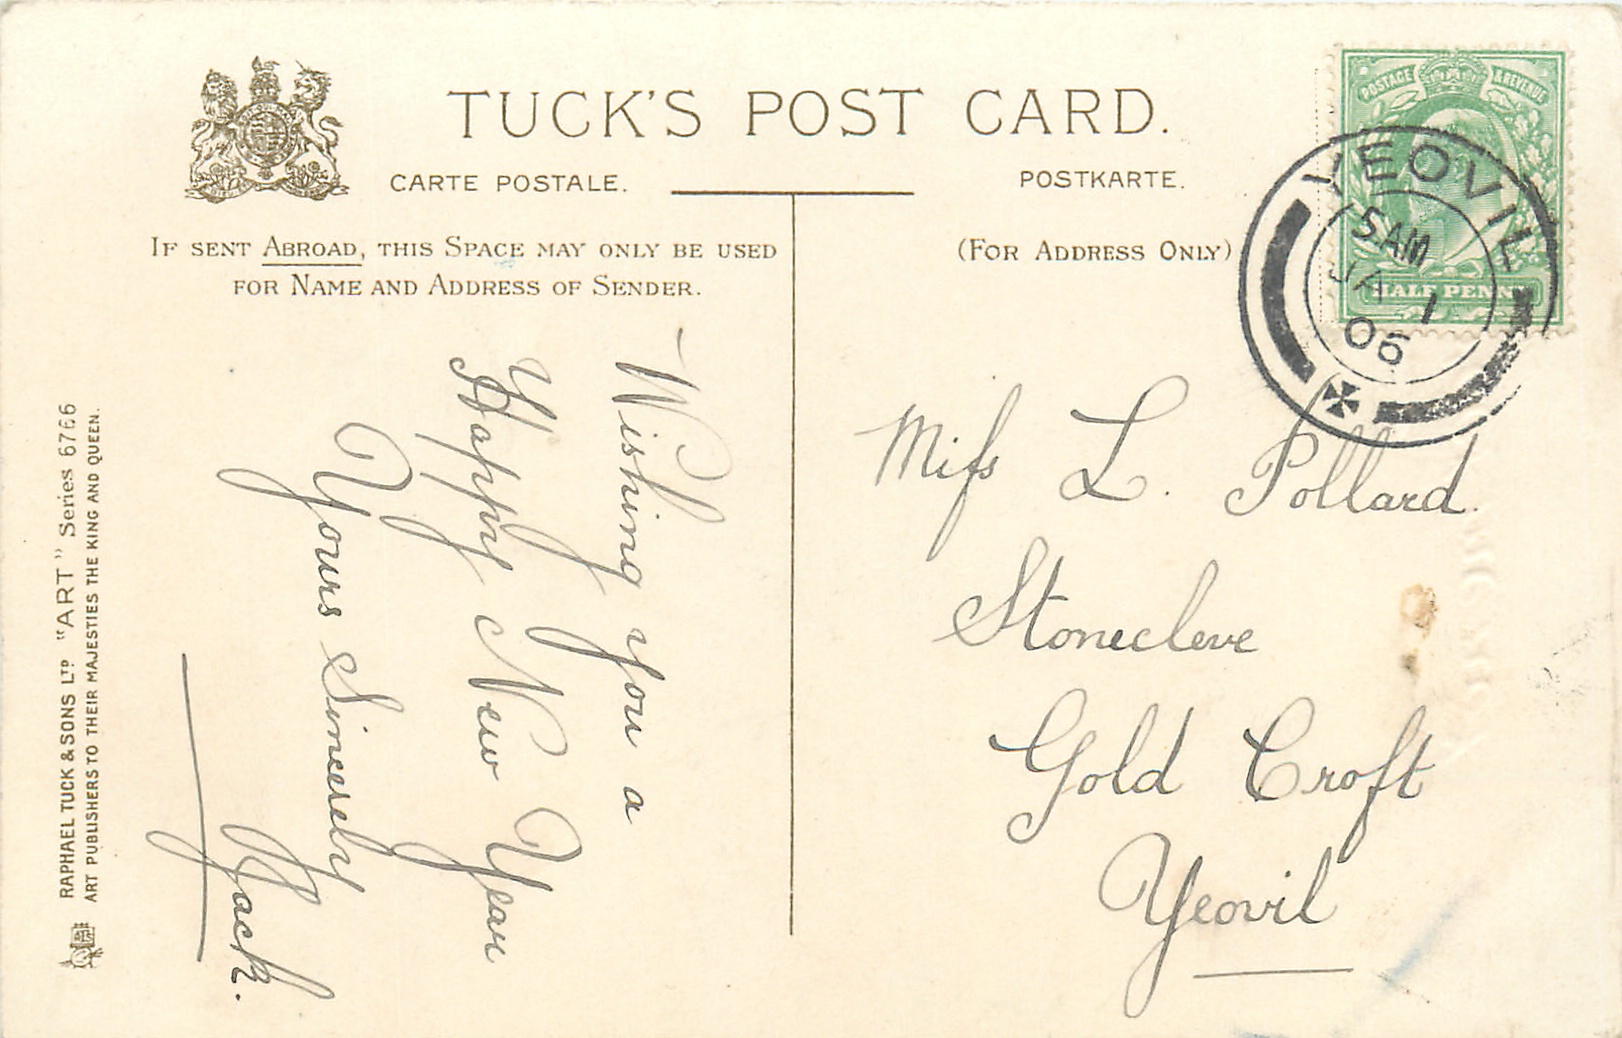 TUCK'S POST CARD.
CARTE POSTALE.
POSTKARTE.
IF SENT ABROAD, THIS SPACE MAY ONLY BE USED
FOR NAME AND ADDRESS OF SENDER.
(FOR ADDRESS ONLY)
POSTAGE & REVENUE
HALF PENNY
YEOVIL
5 AM
JA 1
06
Wishing you a
Happy New Year
Yours Sincerely
Jack.
Miſs L. Pollard.
Stonecleve
Gold Croft
Yeovil
RAPHAEL TUCK & SONS LTD "ART" Series 6766
ART PUBLISHERS TO THEIR MAJESTIES THE KING AND QUEEN.